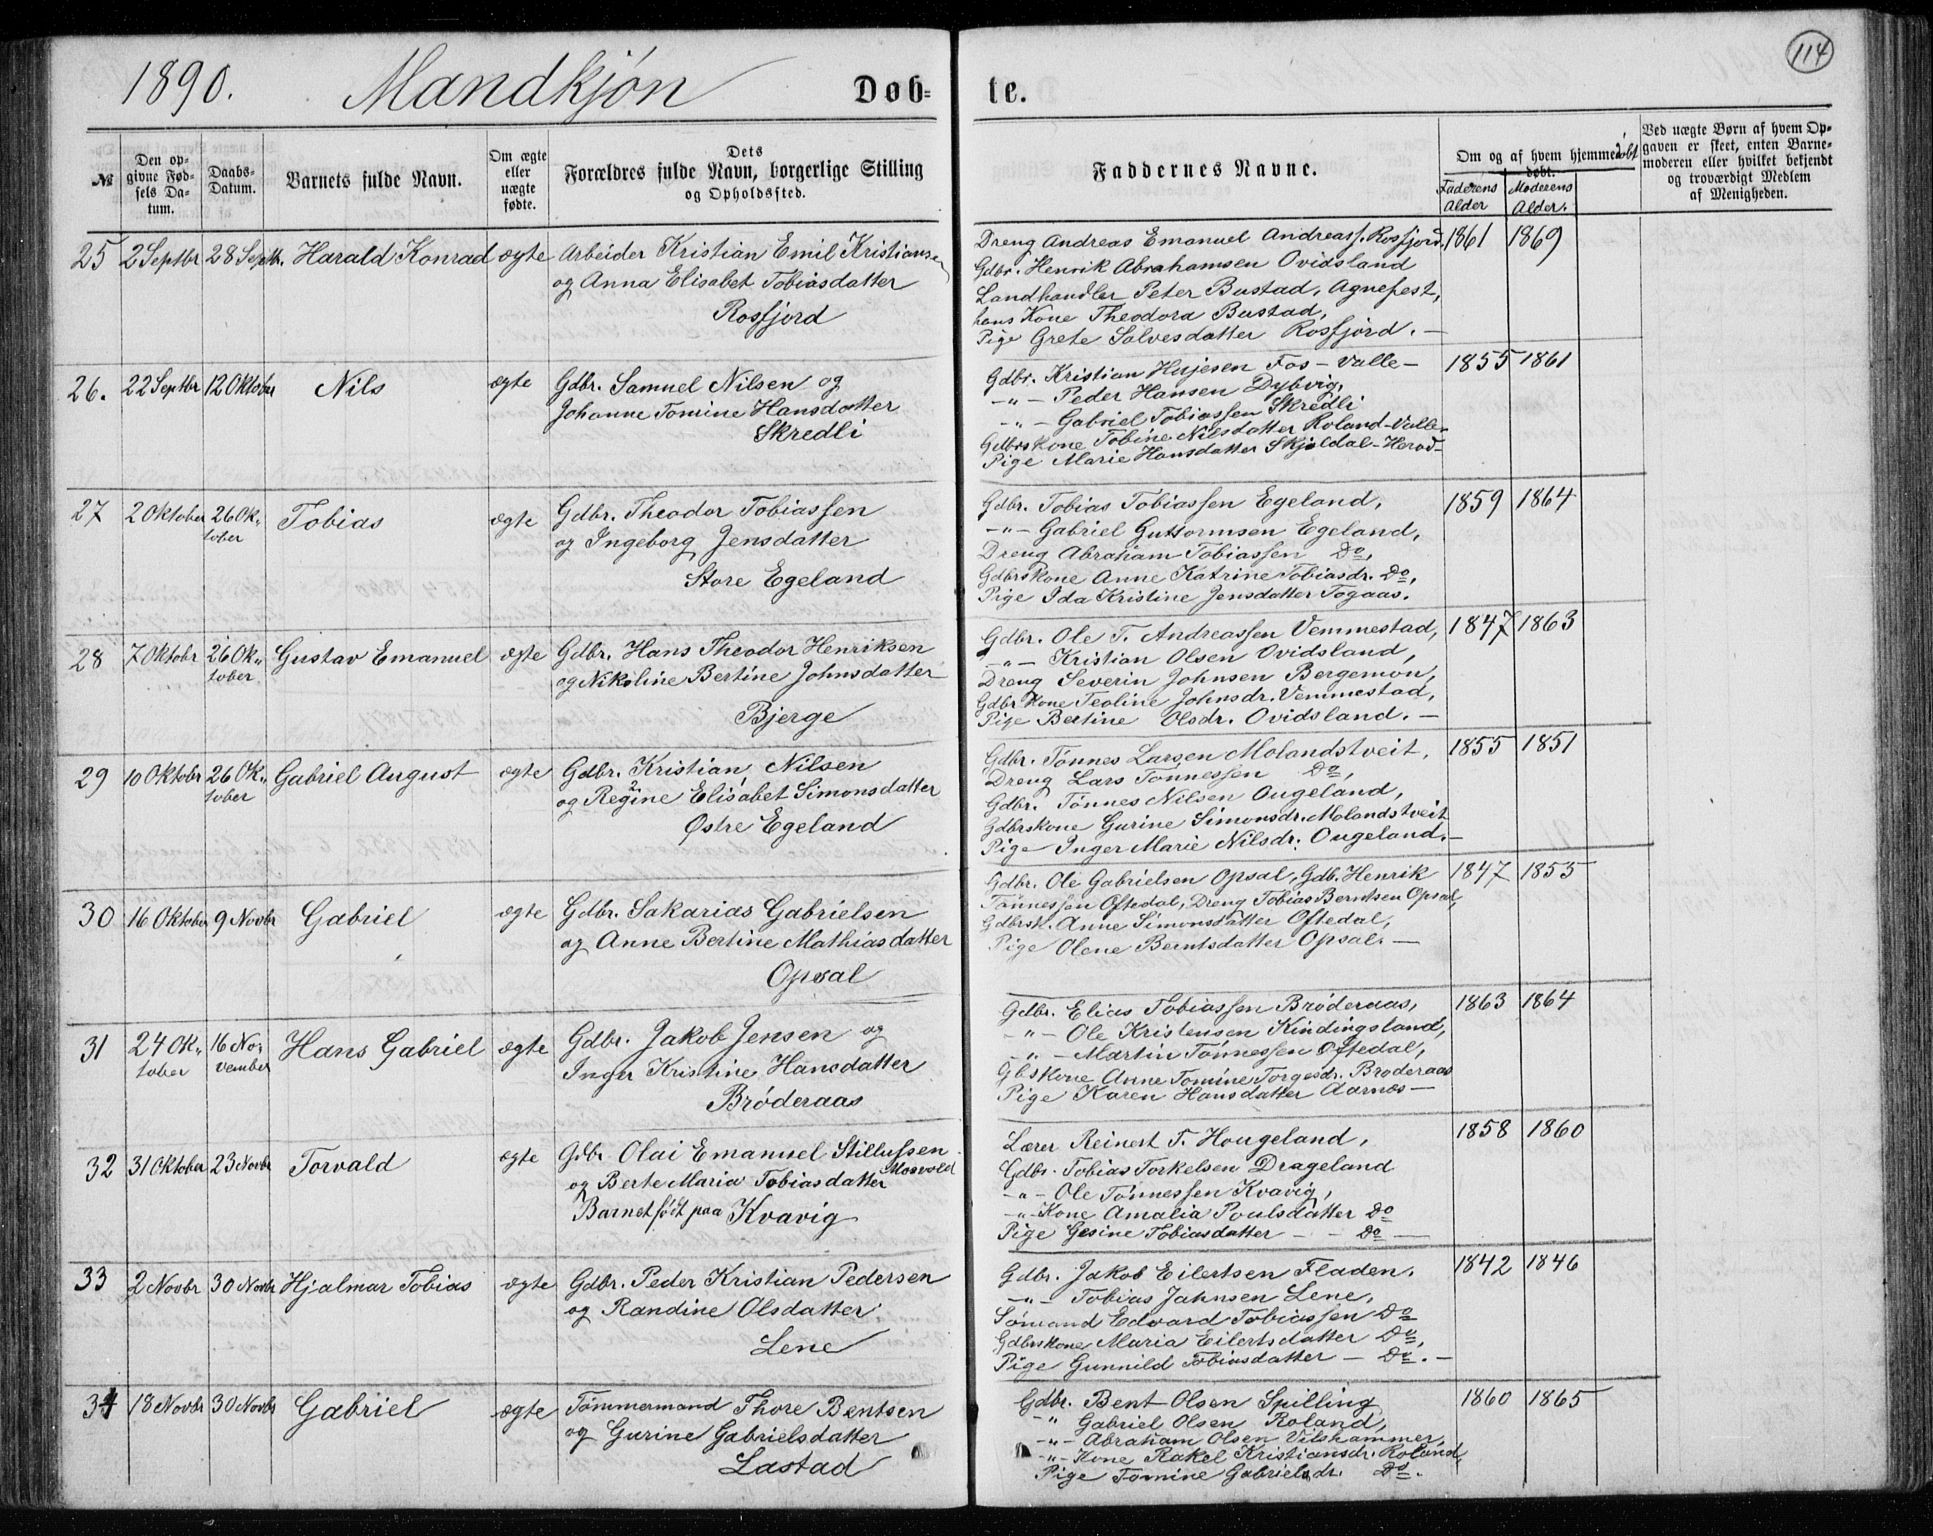 114
1890. Mandkjøn Døb- te.
№ Den opgivne Fødsels Datum. Daabs-Datum. Barnets fulde Navn. Om ægte eller uægte fødte. Dets Forældres fulde Navn, borgerlige Stilling og Opholdssted. Faddernes Navne. Om og af hvem hjemmedøbt døbt. Faderens Alder Moderens Alder. Ved uægte Børn af hvem Opgaven er skeet, enten Barnemoderen eller hvilket bekjendt og troværdigt Medlem af Menigheden.
25 2 Septbr 28 Septb. Harald Konrad ægte Arbeider Kristian Emil Kristiansen
og Anna Elisabet Tobiasdatter
Rosfjord
Dreng Andreas Emanuel Andreass. Rosfjord. 1861 1869
Gdbr. Henrik Abrahamsen Ovidsland
Landhandler Peter Bustad, Agnefest,
hans Kone Theodora Bustad,
Pige Grete Salvesdatter Rosfjord. —
26. 22 Septbr 12 Oktober Nils ægte Gdbr. Samuel Nilsen og
Johanne Tomine Hansdatter
Skredli
Gdbr. Kristian Fos - Valle - 1855 1861
-"- Peder Hansen Dybvig,
-"- Gabriel Tobiassen Skredli
Gdbrskone Tobine Nilsdatter Roland-Valle-
Pige Marie Hansdatter Skjoldal-Herad-
27 2 Oktober 26 Ok- Tobias ægte Gdbr. Theodor Tobiassen
tober og Ingeborg Jensdatter
Store Egeland
Gdbr. Tobias Tobiassen Egeland, 1859 1864
-"- Gabriel Guttormsen Egeland,
Dreng Abraham Tobiassen Do,
Gdbrskone Anne Katrine Tobiasdr. Do,
Pige Ida Kristine Jensdatter Togaas.
28 7 Oktobr 26 Ok- Gustav Emanuel ægte Gdbr. Hans Theodor Henriksen
tober og Nikoline Bertine Johnsdatter
Bjerge
Gdbr. Ole T. Andreassen Vemmestad, 1847 1863
-"- Kristian Olsen Ovidsland,
Dreng Severin Johnsen Bergemon,
Gdbr Kone Teoline Johnsdr. Vemmestad,
Pige Bertine Olsdr. Ovidsland. —
29 10 Oktobr 26 Ok- Gabriel August ægte Gdbr. Kristian Nilsen
tober og Regine Elisabet Simonsdatter
Østre Egeland
Gdbr. Tønnes Larsen Molandstveit, 1855 1851
Dreng Lars Tønnessen Do,
Gdbr. Tønnes Nilsen Ougeland,
Gdbrskone Gurine Simonsdr. Molandstveit
Pige Inger Marie Nilsdr. Ougeland. —
30 16 Oktober 9 Novbr Gabriel ægte Gdbr. Sakarias Gabrielsen
og Anne Bertine Mathiasdatter
Opsal
Gdbr. Ole Gabrielsen Opsal, Gdb. Henrik 1847 1853
Tønnessen Oftedal, Dreng Tobias Berntsen Opsal,
Gdbrsk. Anne Simonsdatter Oftedal,
Pige Olene Berntsdatter Opsal. —
31 24 Ok- 16 No- Hans Gabriel ægte Gdbr. Jakob Jensen og
tober vember Inger Kristine Hansdatter
Brøderaas
Gdbr. Elias Tobiassen Brøderaas, 1863 1864
-"- Ole Kristensen Kindingsland,
-"- Martin Tønnessen Oftedal,
Gbskone Anne Tomine Torgesdr. Brøderaas
Pige Karen Hansdatter Aarnes —
32 31 Oktober 23 Novbr Torvald ægte Gdbr Olai Emanuel Stillufsen
Mosvold
og Berte Maria Tobiasdatter
Barnet født paa Kvavig
Lærer Reinert T. Hougeland, 1858 1860
Gdbr. Tobias Torkelsen Drageland
-"- Ole Tønnessen Kvavig,
-"- Kone Amalia Poulsdatter Do
Pige Gesine Tobiasdatter — - Do —
33 2 Novbr 30 Novbr Hjalmar Tobias ægte Gdbr. Peder Kristian Pedersen
og Randine Olsdatter
Lene
Gdbr. Jakob Eilertsen Fladen. 1842 1846
-"- Tobias Jahnsen Lene,
Sømand Edvard Tobiassen Do
Gdbrskone Maria Eilertsdatter Do,
Pige Gunnild Tobiasdatter — Do. —
34 18 Novbr 30 Novbr Gabriel ægte Tømmermand Thore Bentsen
og Gurine Gabrielsdatter
Lastad
Gdbr. Bent Olsen Spilling 1860 1865
-"- Gabriel Olsen Roland,
-"- Abraham Olsen Vilshammer,
-"- Kone Rakel Kristiansdr. Roland,
Pige Tomine Gabrielsdr. Do.